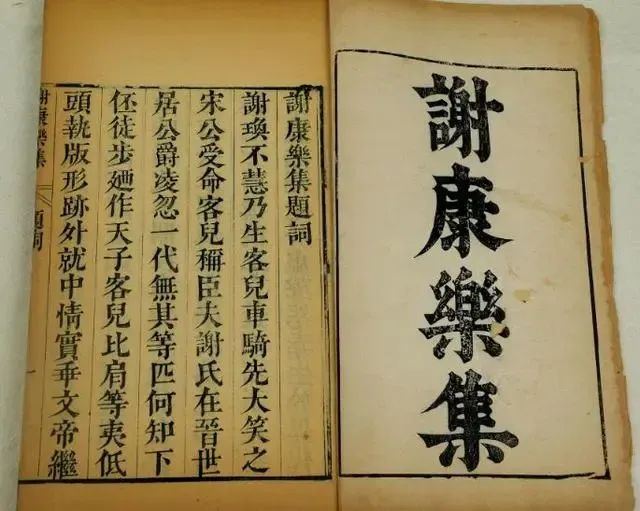 謝康樂集
謝康樂集題詞
謝瑍不慧乃生客兒車騎先大笑之
宋公受命客兒稱臣夫謝氏在晉世
居公爵凌忽一代無其等匹何知下
伾徒步廼作天子客兒比肩等夷低
頭執版形跡外就中情實乖文帝繼
謝康樂集 題詞